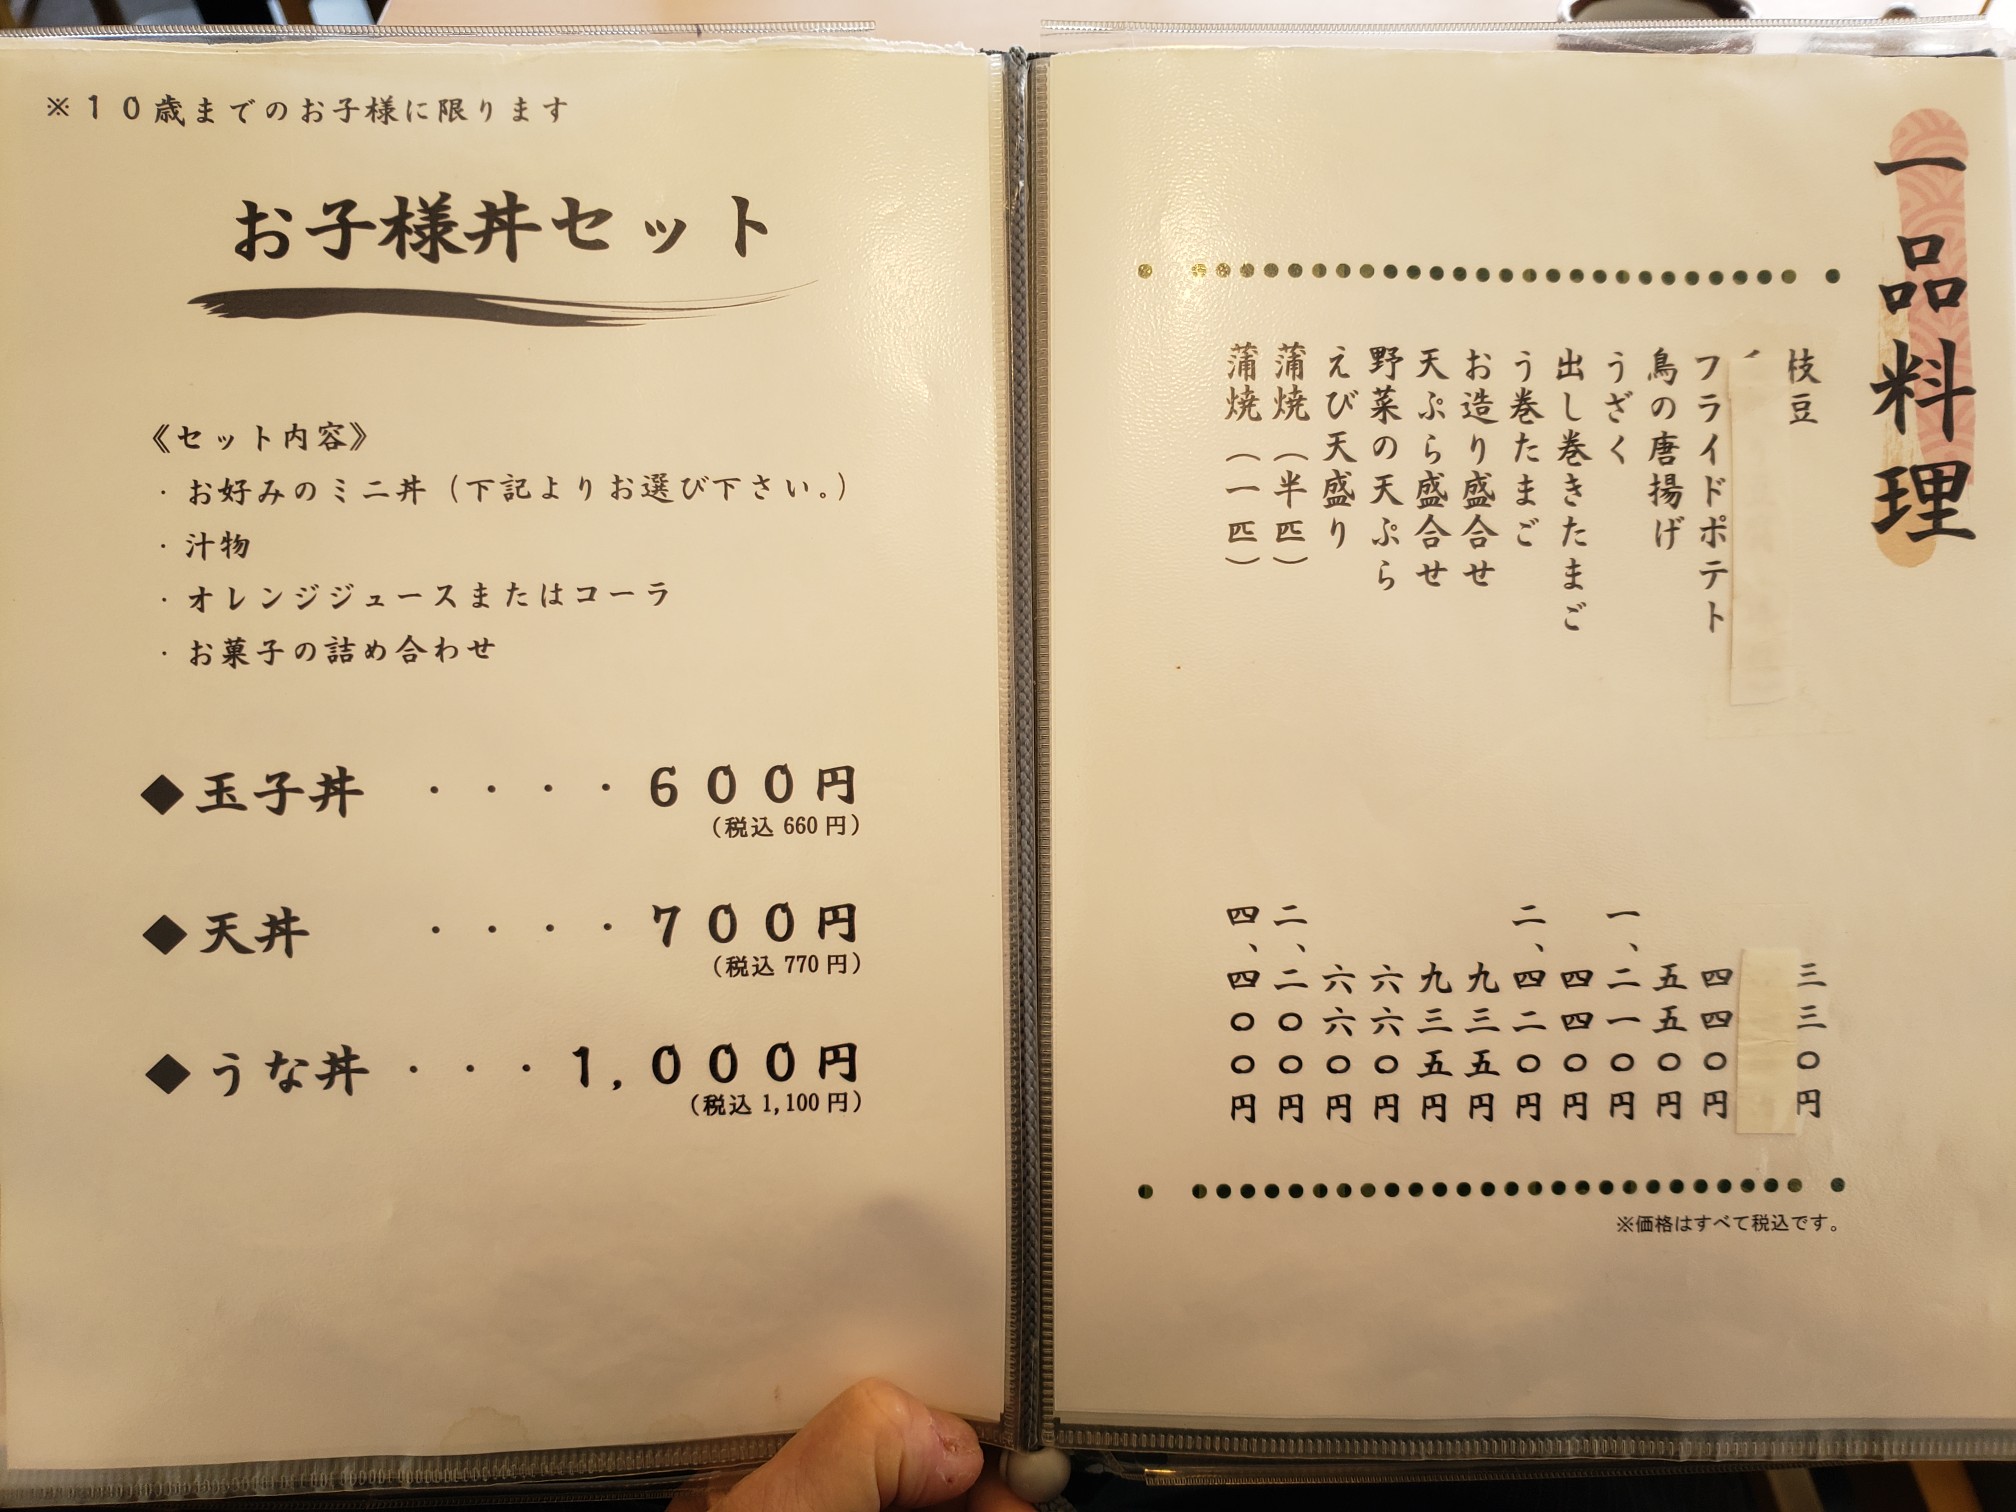 ※１０歳までのお子様に限ります
お子様丼セット
《セット内容》
・お好みのミニ丼（下記よりお選び下さい。）
・汁物
・オレンジジュースまたはコーラ
・お菓子の詰め合わせ
◆玉子丼 ・・・・６００円
（税込 660 円）
◆天丼 ・・・・７００円
（税込 770 円）
◆うな丼・・・１,０００円
（税込 1,100 円）
一品料理
枝豆 三三〇円
フライドポテト 四四〇円
鳥の唐揚げ 五五〇円
うざく 一、二一〇円
出し巻きたまご 四四〇円
う巻たまご 二、四二〇円
お造り盛合せ 九三五円
天ぷら盛合せ 九三五円
野菜の天ぷら 六六〇円
えび天盛り 六六〇円
蒲焼（半匹） 二、二〇〇円
蒲焼（一匹） 四、四〇〇円
※価格はすべて税込です。